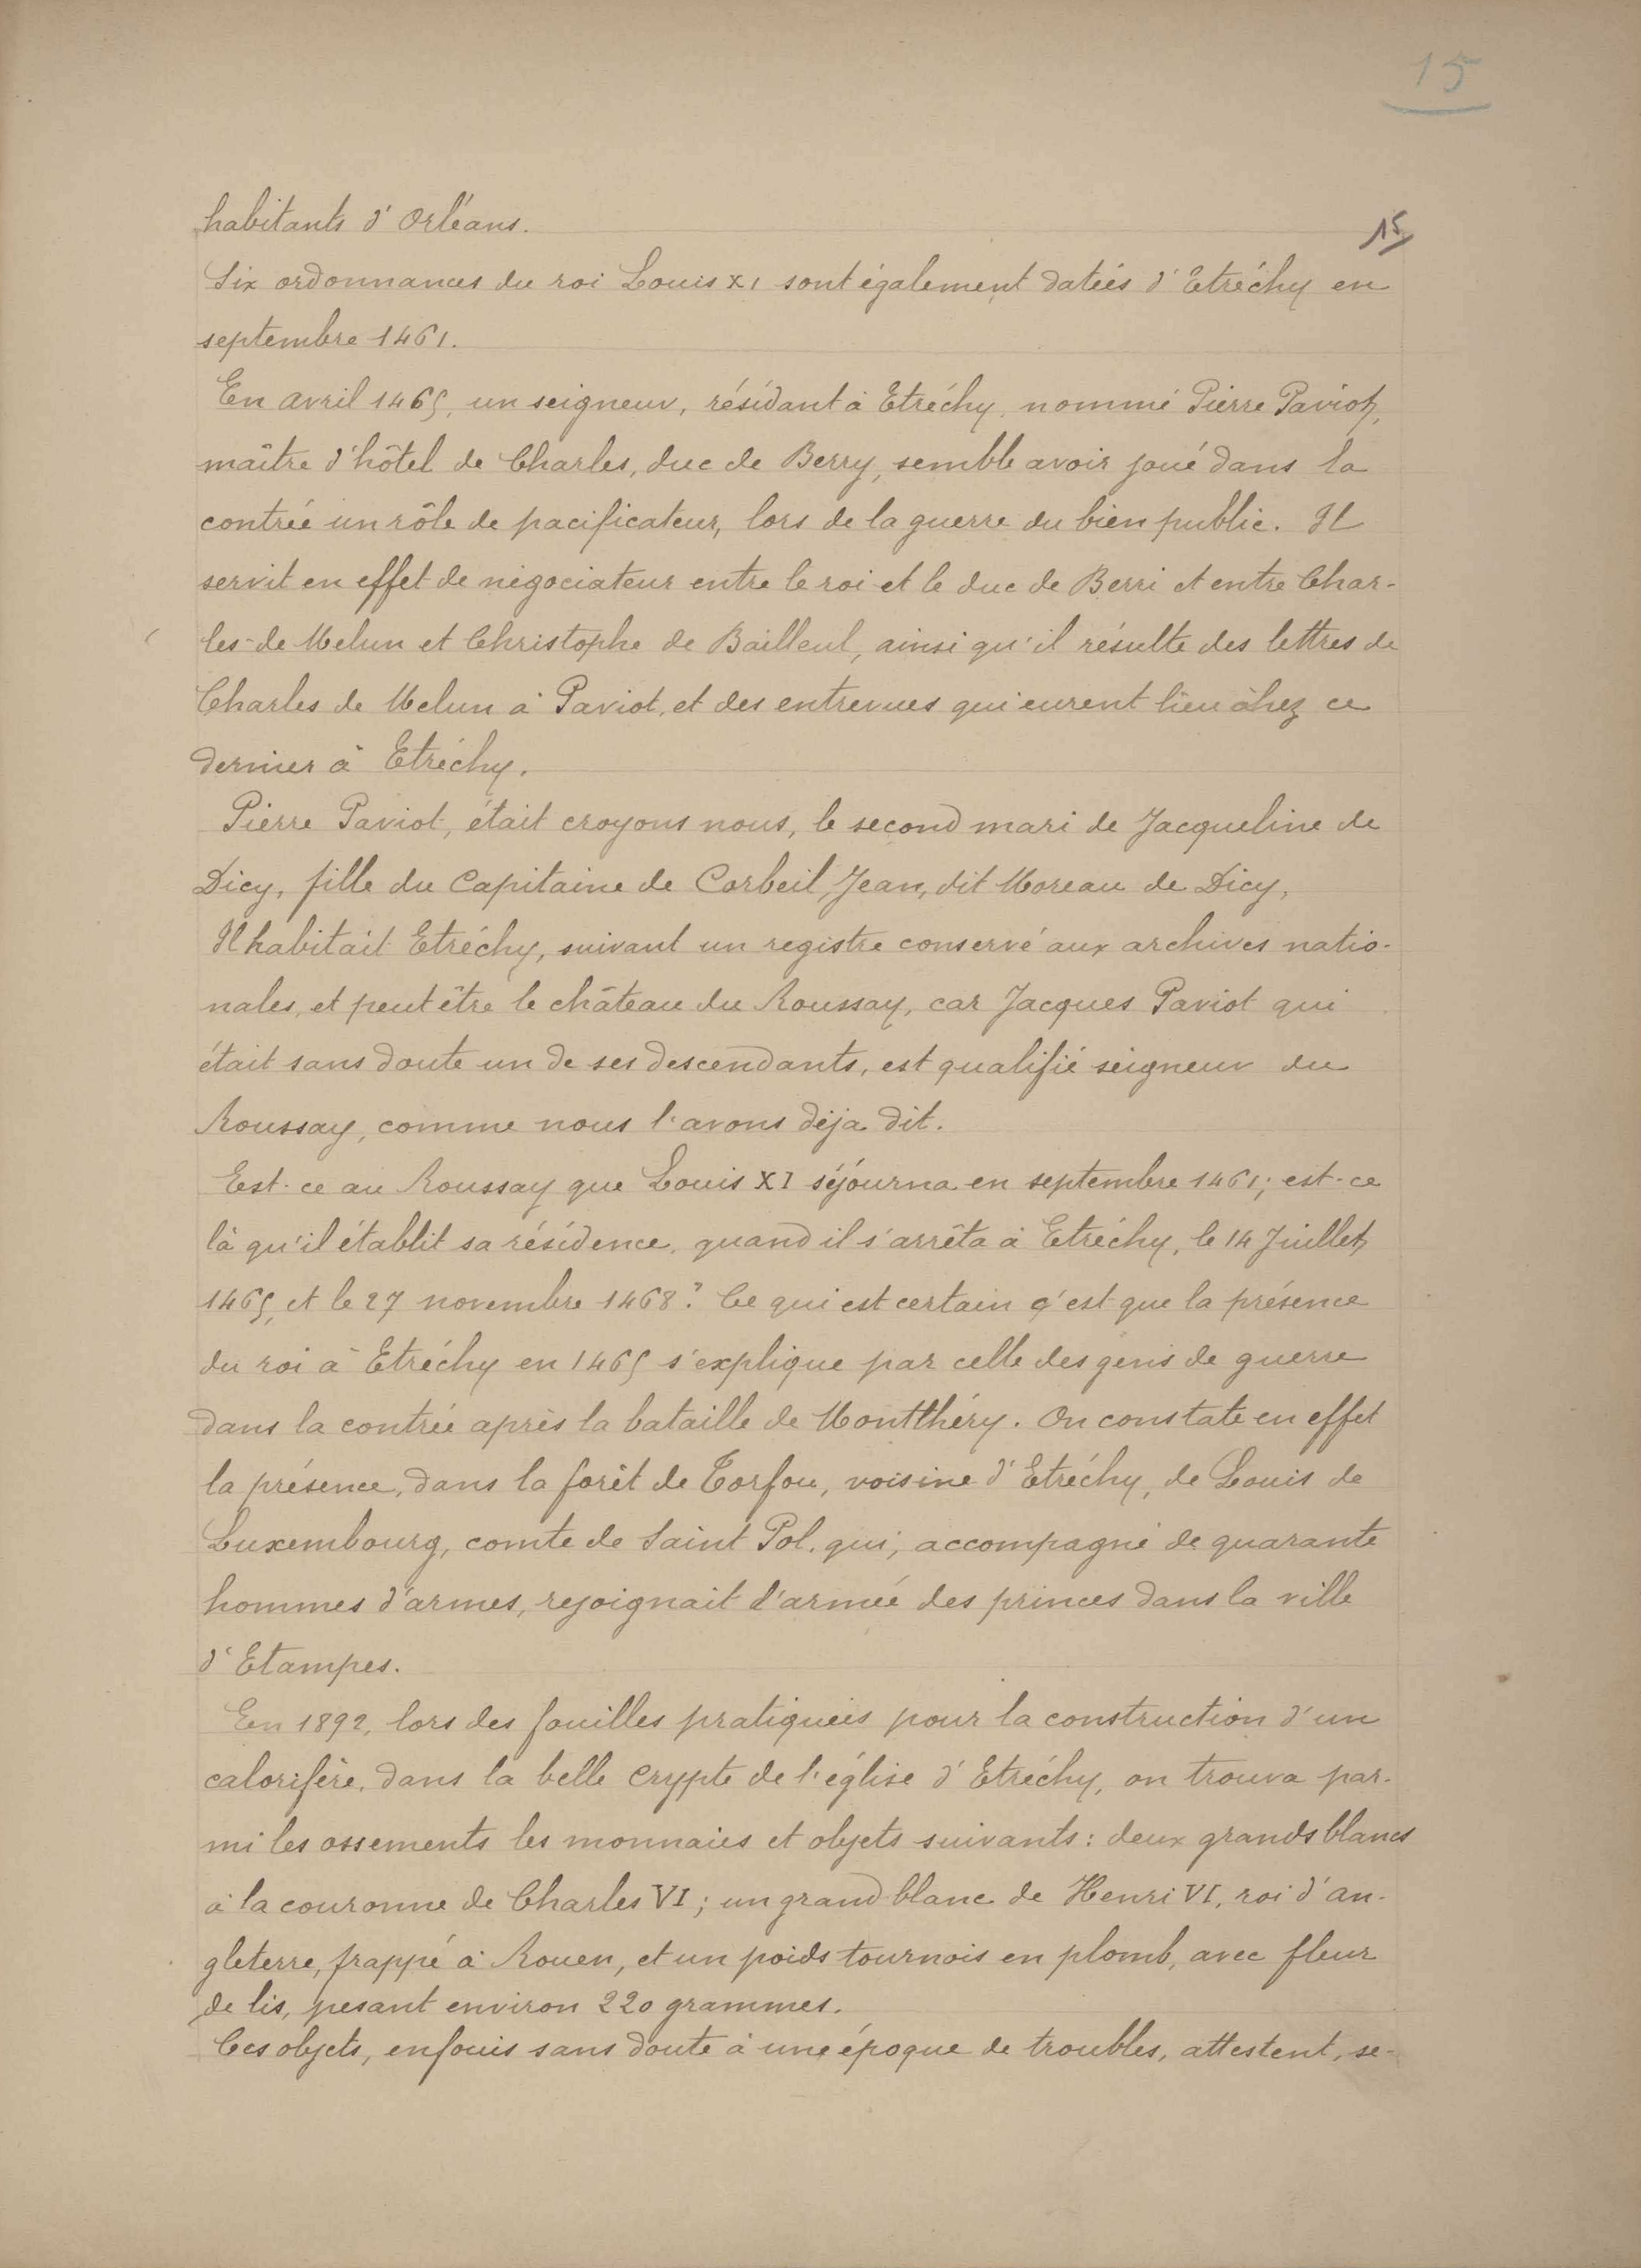 15
habitants d'Orléans.
15
Six ordonnances du roi Louis XI sont également datées d'Etréchy en
septembre 1461.
En avril 1465, un seigneur, résidant à Etréchy, nommé Pierre Paviot,
maître d'hôtel de Charles, duc de Berry, semble avoir joué dans la
contrée un rôle de pacificateur, lors de la guerre du bien public. Il
servit en effet de négociateur entre le roi et le duc de Berri et entre Char-
les de Melun et Christophe de Bailleul, ainsi qu'il résulte des lettres de
Charles de Melun à Paviot, et des entrevues qui eurent lieu chez ce
dernier à Etréchy.
Pierre Paviot, était croyons nous, le second mari de Jacqueline de
Dicy, fille du Capitaine de Corbeil, Jean, dit Moreau de Dicy,
Il habitait Etréchy, suivant un registre conservé aux archives natio-
nales, et peut être le château du Roussay, car Jacques Paviot qui
était sans doute un de ses descendants, est qualifié seigneur du
Roussay, comme nous l'avons déja dit.
Est-ce au Roussay que Louis XI séjourna en septembre 1461; est-ce
là qu'il établit sa résidence, quand il s'arrêta à Etréchy, le 14 Juillet
1465, et le 27 novembre 1468? Ce qui est certain c'est que la présence
du roi à Etréchy en 1465 s'explique par celle des gens de guerre
dans la contrée après la bataille de Montlhéry. On constate en effet
la présence, dans la forêt de Torfou, voisine d'Etréchy, de Louis de
Luxembourg, comte de Saint Pol, qui, accompagné de quarante
hommes d'armes, rejoignait l'armée des princes dans la ville
d'Etampes.
En 1892, lors des fouilles pratiquées pour la construction d'un
calorifère, dans la belle crypte de l'église d'Etréchy, on trouva par-
mi les ossements les monnaies et objets suivants: deux grands blancs
à la couronne de Charles VI; un grand blanc de Henri VI, roi d'an-
gleterre, frappé à Rouen, et un poids tournois en plomb, avec fleur
de lis, pesant environ 220 grammes.
Ces objets, enfouis sans doute à une époque de troubles, attestent, se-